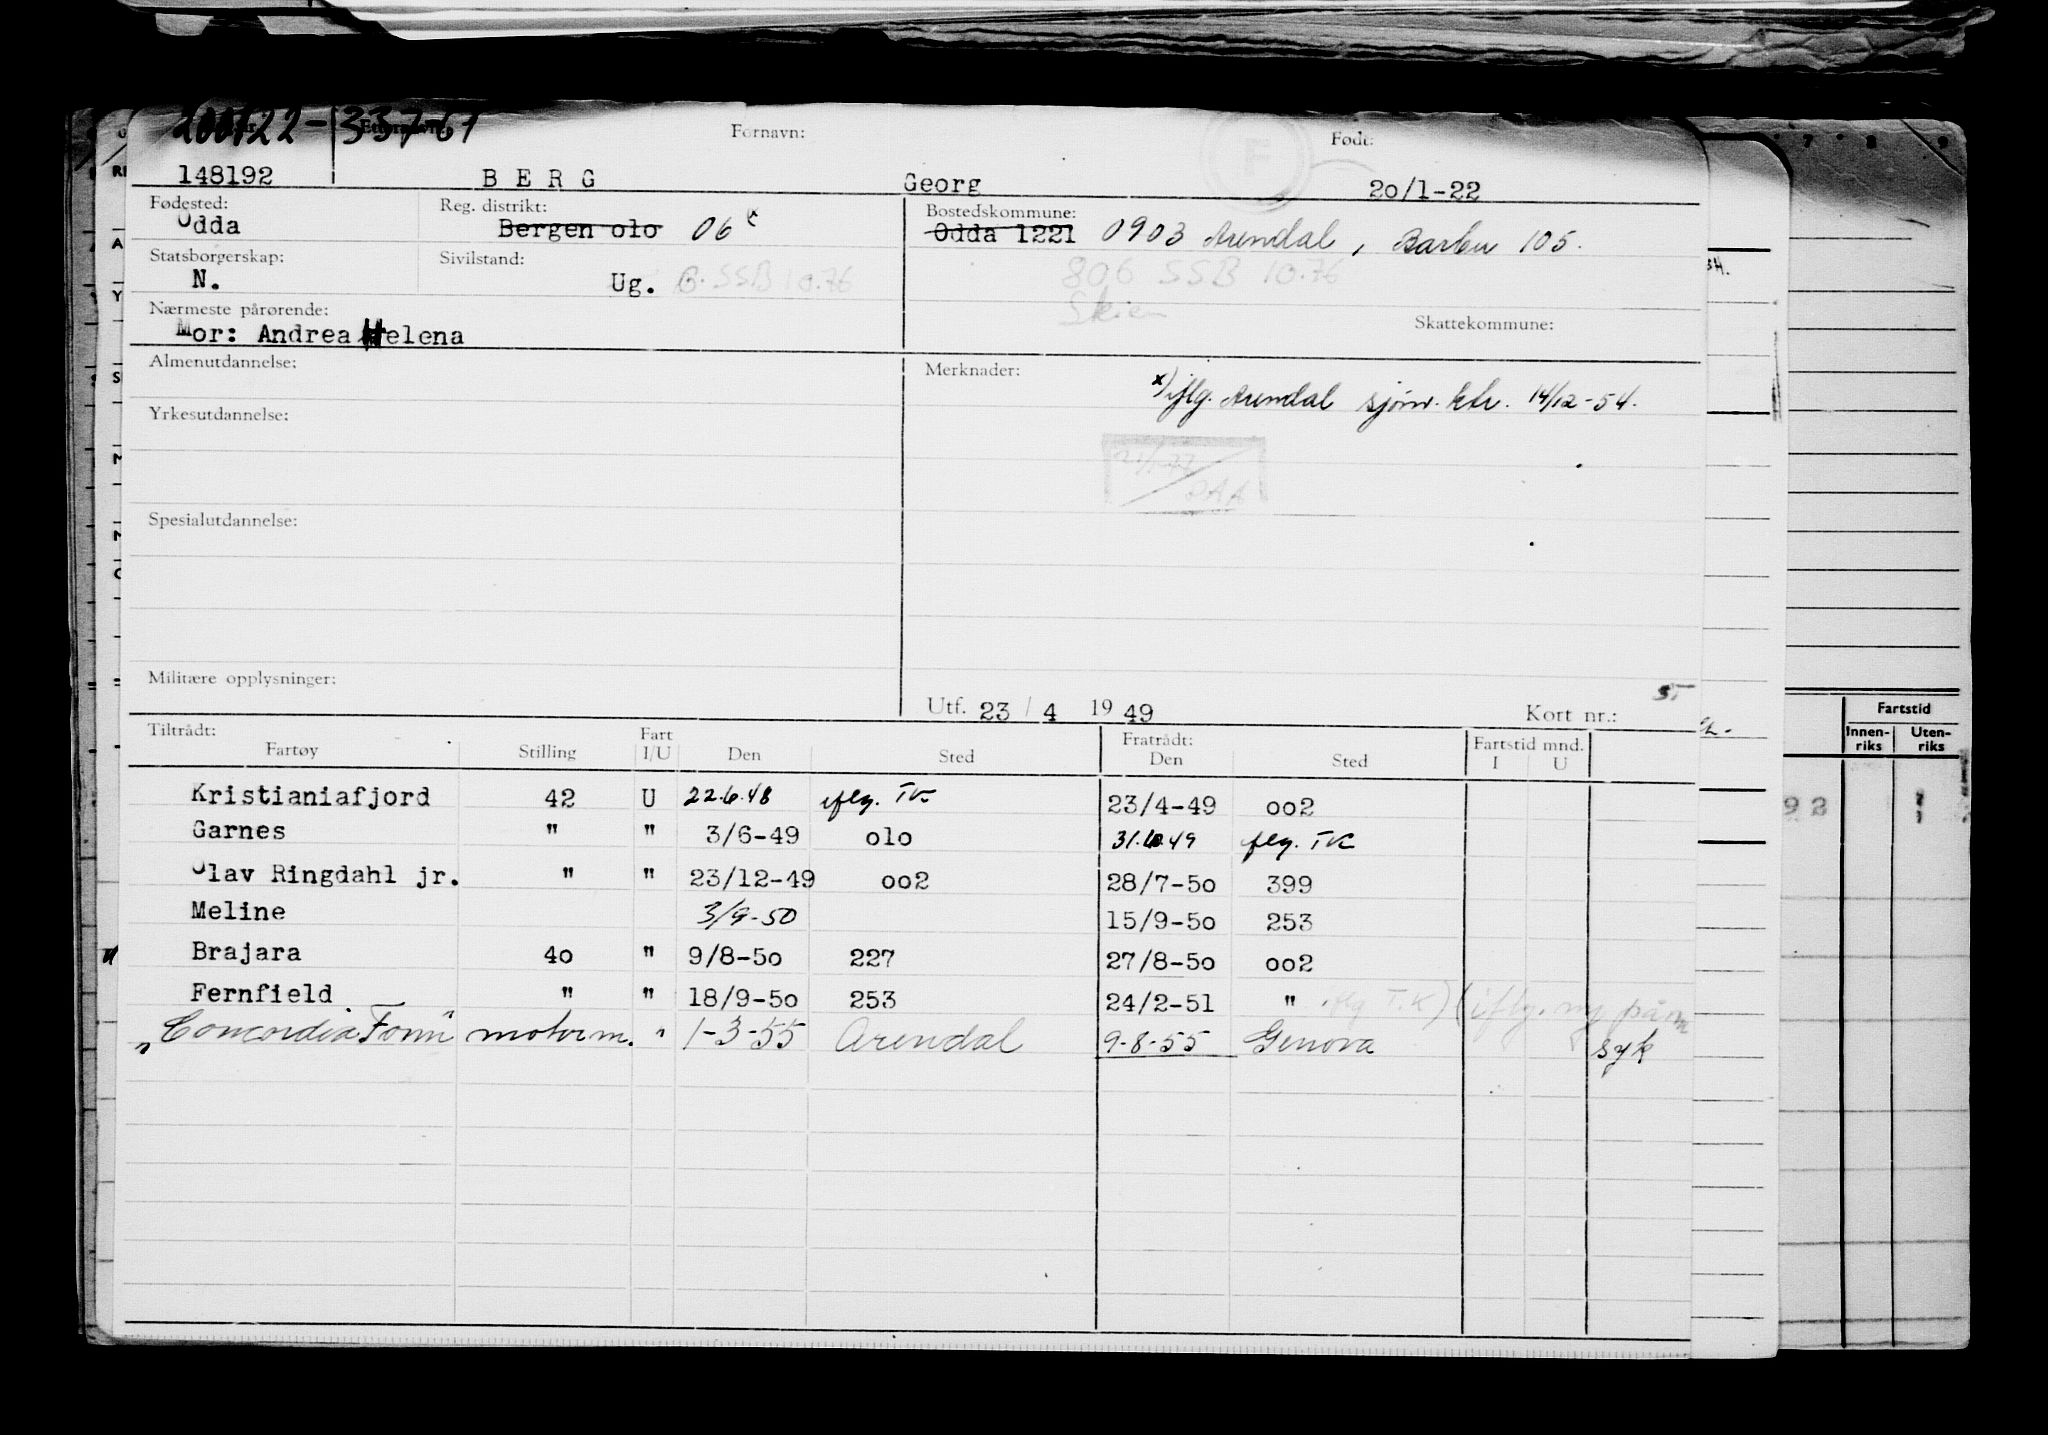 200122-33767
Fornavn: Født:
148192 BERG Georg 20/1-22
Fødested: Reg. distrikt: Bostedskommune:
Odda Bergen 010 06 x Odda 1221 0903 Arendal, Barbu 105.
Statsborgerskap: Sivilstand:
N. Ug. G. SSB 10.76 806 SSB 10.76
Skien
Nærmeste pårørende: Skattekommune:
Mor: Andrea Helena
Almenutdannelse: Merknader:
x) iflg. Arendal sjømr. ktr. 14/12-54.
Yrkesutdannelse:
21/1-77
Spesialutdannelse:
Militære opplysninger:
Utf. 23 / 4 1949 Kort nr.:
Tiltrådt: Fratrådt:
Fartøy Stilling Fart I/U Den Sted Den Sted Fartstid mnd. I U
Kristianiafjord 42 U 22.6.48 iflg. TK 23/4-49 002
Garnes " " 3/6-49 010 31.10.49 iflg. TK
Olav Ringdahl jr. " " 23/12-49 002 28/7-50 399
Meline 3/9-50 15/9-50 253
Brajara 40 " 9/8-50 227 27/8-50 002
Fernfield " " 18/9-50 253 24/2-51 " iflg T.K) (iflg. ny påm
"Concordia Fonn" motorm. " 1-3-55 Arendal 9-8-55 Genova syk
Fartstid
Innen-riks Uten-riks
92